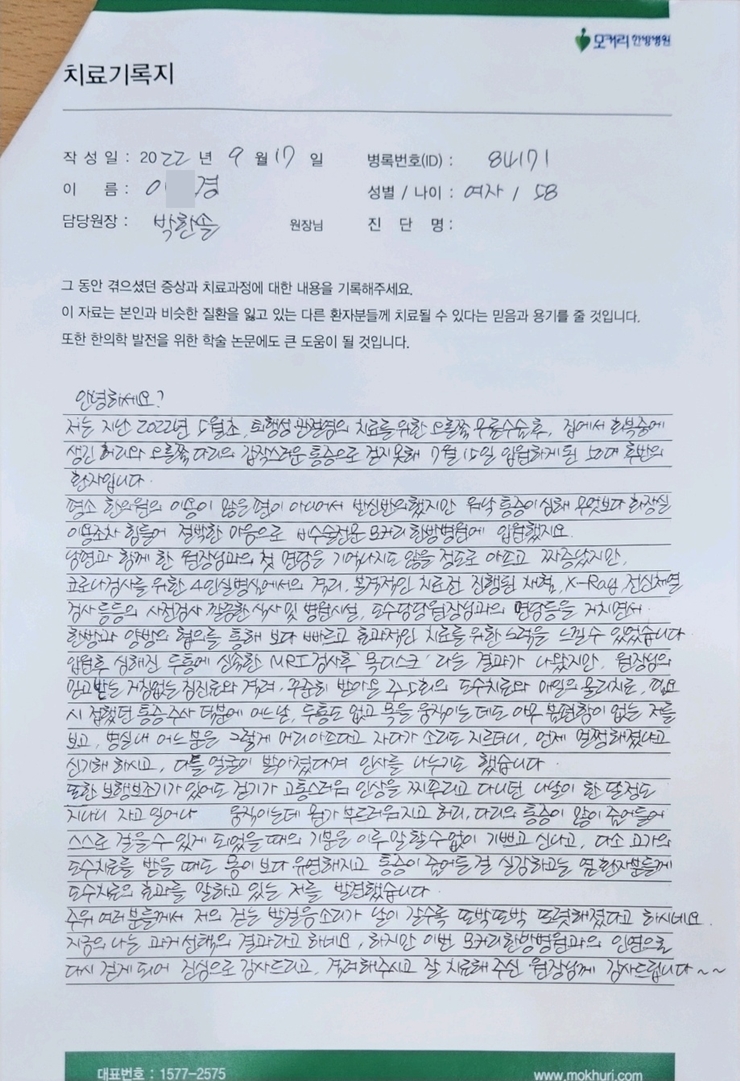 모커리한방병원
치료기록지
작 성 일 : 2022 년 9 월 17 일 병록번호(ID) : 84171
이 름 : 이 경 성별 / 나이 : 여자 / 58
담당원장 : 박한솔 원장님 진 단 명 :
그 동안 겪으셨던 증상과 치료과정에 대한 내용을 기록해주세요.
이 자료는 본인과 비슷한 질환을 잃고 있는 다른 환자분들께 치료될 수 있다는 믿음과 용기를 줄 것입니다.
또한 한의학 발전을 위한 학술 논문에도 큰 도움이 될 것입니다.
안녕하세요?
저는 지난 2022년 5월초, 퇴행성 관절염의 치료를 위한 오른쪽 무릎수술후, 집에서 회복중에
생긴 허리와 오른쪽 다리의 갑작스러운 통증으로 걷지못해 7월 15일 입원하게된 50대 후반의
환자입니다.
평소 한의원의 이용이 많은 편이 아니어서 반신반의했지만 워낙 통증이 심해 무엇보다 화장실
이용조차 힘들어 절박한 마음으로 비수술전문 모커리한방병원에 입원했지요.
남편과 함께 한 원장님과의 첫 면담은 기억나지도 않을 정도로 아프고 짜증났지만,
코로나검사를 위한 4인실병실에서의 격리, 본격적인 치료전 진행된 채혈, X-Ray, 전신체열
검사 등등의 사전검사, 깔끔한 식사 및 병원시설, 도수담당원장님과의 면담등을 거치면서
한방과 양방의 협의를 통해 보다 빠르고 효과적인 치료를 위한 노력을 느낄수 있었습니다.
입원후 심해진 두통에 신속한 MRI 검사후 '목디스크' 라는 결과가 나왔지만, 원장님의
믿고받는 거침없는 침진료와 격려, 꾸준히 받아온 주5회의 도수치료와 매일의 물리치료, 필요
시 접했던 통증주사 덕분에 어느날, 두통도 없고 목을 움직이는 데도 아무 불편함이 없는 저를
보고, 병실내 어느 분은 그렇게 머리아프다고 자다가 소리도 지르더니, 언제 멀쩡해졌냐고
신기해 하시고, 다들 얼굴이 밝아졌다며 인사를 나누기도 했습니다.
또한 보행보조기가 있어도 걷기가 고통스러움 인상을 찌푸리고 다니던 나날이 한 달정도
지나니 자고 일어나 움직이는데 뭔가 부드러움지고 허리, 다리의 통증이 많이 줄어들어
스스로 걸을수 있게 되었을 때의 기분은 이루 말할 수없이 기쁘고 신나고, 다소 고가의
도수치료를 받을 때도 몸이 보다 유연해지고 통증이 줄어든 걸 실감하고는 옆 환자분들께
도수치료의 효과를 말하고 있는 저를 발견했습니다.
주위 여러분들께서 저의 걷는 발걸음소리가 날이 갈수록 또박또박 또렷해졌다고 하시네요.
지금의 나는 과거 선택의 결과라고 하네요, 하지만 이번 모커리한방병원과의 인연으로
다시 걷게 되어 진심으로 감사드리고, 격려해주시고 잘 치료해 주신 원장님께 감사드립니다~~
대표번호 : 1577-2575 www.mokhuri.com